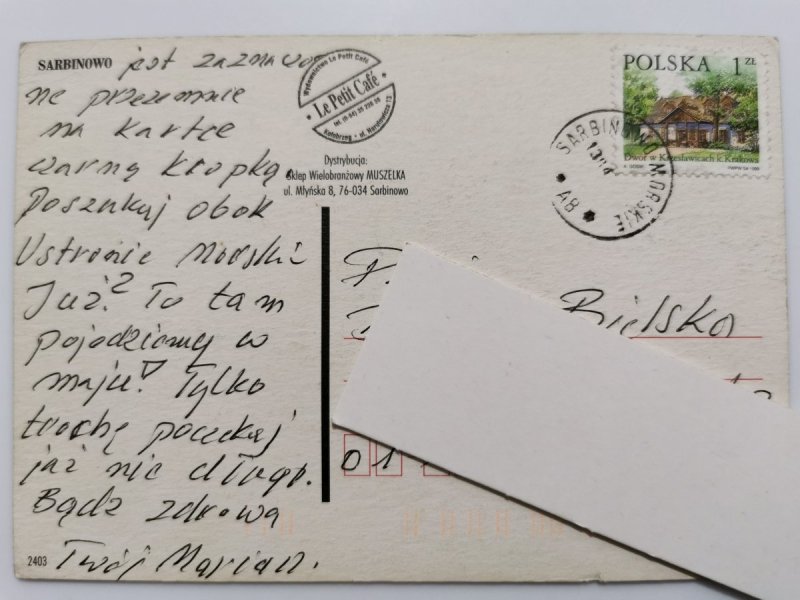 SARBINOWO jest zaznaczo
ne przezemnie
na kartce
czarną kropką.
Poszukaj obok
Ustronie Morskie
Już? To tam
pojedziemy w
maju! Tylko
trochę poczekaj
już nie długo.
Bądź zdrowa
Twój Marian.
2403
Wydawnictwo Le Petit Café
Le Petit Café
Kołobrzeg
Dystrybucja:
Sklep Wielobranżowy MUSZELKA
ul. Młyńska 8, 76-034 Sarbinowo
POLSKA 1 ZŁ
Dwór w Krzesławicach k. Krakowa
SARBINOWO MORSKIE
* AB *
Bielsko
01